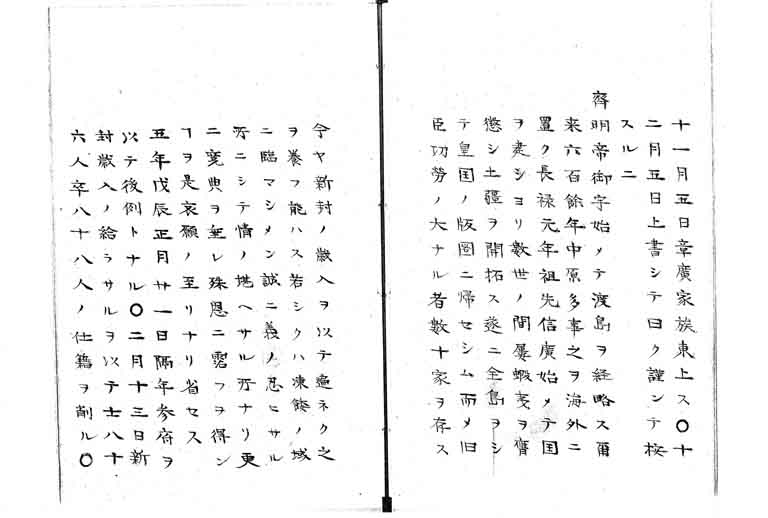 十一月五日章廣家族東上ス〇十
二月五日上書シテ曰ク謹ンテ按
スルニ
齊明帝御宇始メテ渡島ヲ経略ス爾
来六百餘年中原多事之ヲ海外ニ
置ク長禄元年祖先信廣始メテ国
ヲ建シヨリ數世ノ間屢蝦夷ヲ膺
懲シ土疆ヲ開拓ス遂ニ全島ヲシ
テ皇国ノ版圖ニ帰セシム而メ旧
臣功勞ノ大ナル者數十家ヲ存ス
今ヤ新封ノ歳入ヲ以テ遍ネク之
ヲ養フ能ハス若シクハ凍餒ノ域
ニ臨マシメン誠ニ義ノ忍ヒサル
所ニシテ情ノ堪ヘサル所ナリ更
ニ寛典ヲ垂レ殊恩ニ霑フヲ得ン
ヿヲ是哀願ノ至リナリ省セス
五年戊辰正月廿一日隔年参府ヲ
以テ後例トナル〇二月十三日新
封歳入ノ給ラサルヲ以テ士八十
六人卒八十八人ノ仕籍ヲ削ル〇